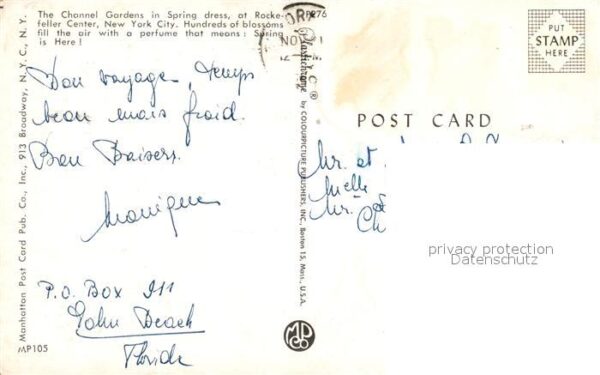 The Channel Gardens in Spring dress, at Rocke-
feller Center, New York City. Hundreds of blossoms
fill the air with a perfume that means: Spring
is Here!
Bon voyage, temps
beau mais froid.
Bon Baisers.
Monique
P.O. Box 911
Beach
Florida
MP105
Manhattan Post Card Pub. Co., Inc., 913 Broadway, N.Y.C., N.Y.
P876
NOV
Plastichrome ® by COLOURPICTURE PUBLISHERS, INC., Boston 15, Mass., U.S.A.
MP
CO
PUT
STAMP
HERE
POST CARD
Mr. et
Melle
Mr.
privacy protection
Datenschutz